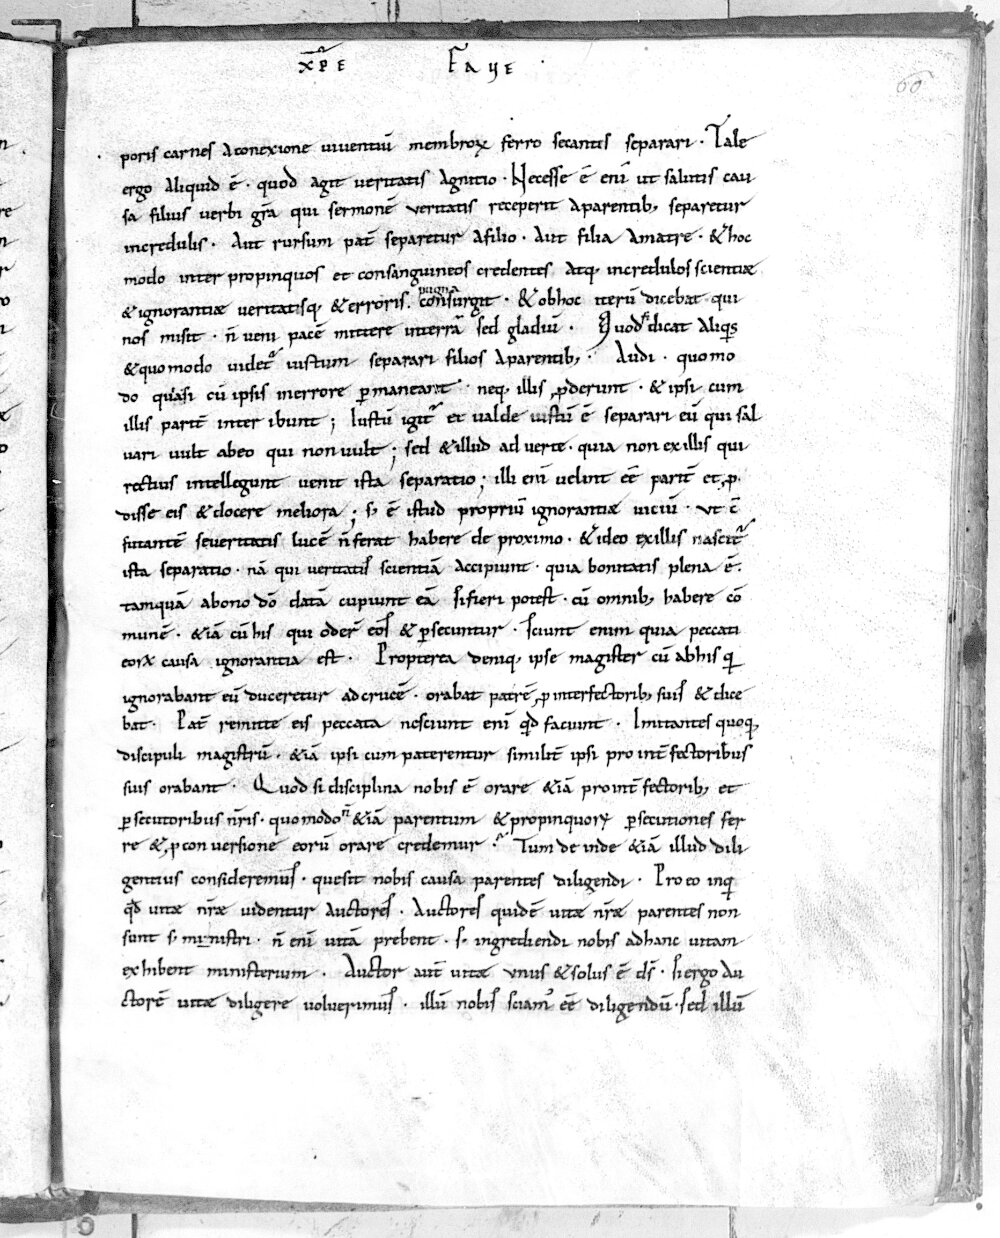 xp̅e faue
60
poris carnes a conexione uiuentiū membroꝝ ferro secantis separari. Tale
ergo aliquid ē. quod agit ueritatis agnitio. Necesse ē eni ut salutis cau
sa filius uerbi gr̄a qui sermonē ueritatis receperit aparentib; separetur
incredulis. Aut rursum pat̄ separetur afilio. Aut filia amatre. & hoc
modo inter propinquos et consanguineos credentes atq; incredulos scientiæ
& ignorantiæ ueritatisq; & erroris. pugna consurgit. & obhoc iterū dicebat qui
nos misit. n̄ ueni pacē mittere interrā sed gladiū. Quod si dicat aliq̇s
& quomodo uidet͛ iustum separari filios aparentib;. Audi. quomo
do quasi cū ipsis inerrore ꝑmaneant. neq; illis ꝓderunt. & ipsi cum
illis parit̄ interibunt; Iustū igit͛ et ualde iustū ē separari eū qui sal
uari uult abeo qui non uult; sed & illud aduerte. quia non exillis qui
rectius intellegunt uenit ista separatio; illi eni uelint eē parit̄ et ꝓ
disse eis & docere meliora; s; ē istud propriū ignorantiæ uiciū. ut c̄
futantē seueritatis lucē n̄ ferat habere de proximo. & ideo exillis nascit͛
ista separatio. nā qui ueritatis scientiā accipiunt. quia bonitatis plena ē.
tamquā abono dō datā cupiunt eā si fieri potest. cū omnib; habere cō
munē. & iā cū his qui oder̄ eos & ꝑsecuntur. sciunt enim quia peccati
eoꝝ causa ignorantia est. Propterea deniq; ipse magister cū abhis q̇
ignorabant eū duceretur adcrucē. orabat patrē ꝓ interfectorib; suis & dice
bat. Pat̄ remitte eis peccata nesciunt eni qd̄ faciunt. Imitantes quoq;
discipuli magistrū. & iā ipsi cum paterentur similit̄ ipsi pro int̄fectoribus
suis orabant. Quod si disciplina nobis ē orare & iā proint̄fectorib; et
ꝑsecutoribus n̄ris. quomodo n̄ & iā parentum & propinquoꝝ ꝑsecutiones fer
re & ꝓ conuersione eorū orare credemur. Tum deinde & iā illud dili
gentius consideremus. quesit nobis causa parentes diligendi. Pro eo inq̇
qd̄ uitæ n̄ræ uidentur auctores. Auctores quidē uitæ n̄ræ parentes non
sunt s; ministri. n̄ eni uitā prebent. s; ingrediendi nobis adhanc uitam
exhibent ministerium. Auctor aut̄ uitæ unus & solus ē d̄s. si ergo au
ctorē uitæ diligere uoluerimus. illū nobis sciam͛ eē diligendū. sed illū